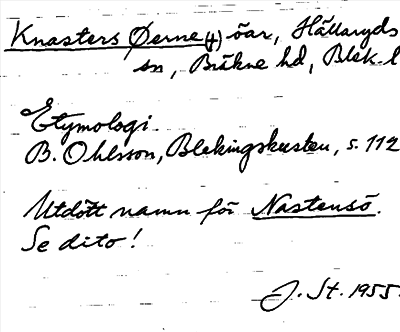 Knasters Øerne (f) öar, Hällaryds
sn, Bräkne hd, Blek. l
Etymologi
B. Ohlsson, Blekingskusten, s. 112
Utdött namn för Nastensö.
Se dito!
J. St. 1955.